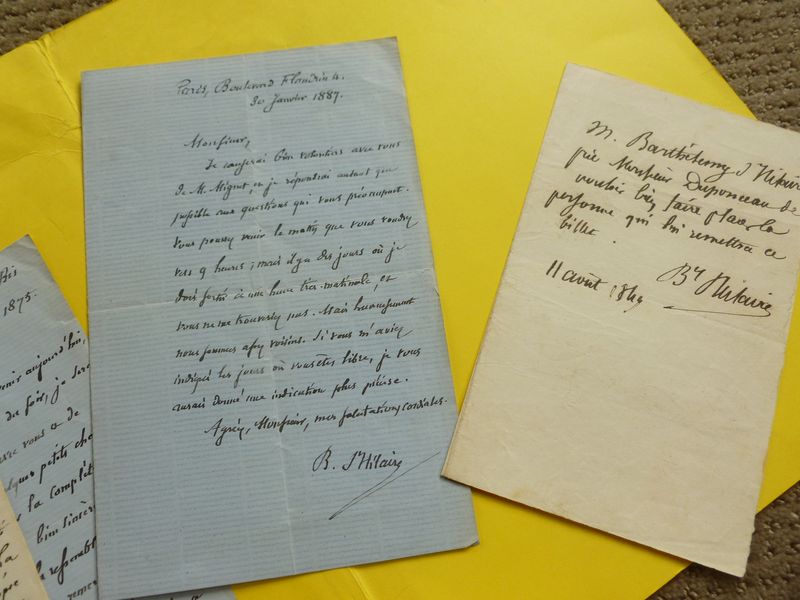 Paris, Boulevard Flandrin 4.
30 Janvier 1887.
Monsieur,
Je causerai bien volontiers avec vous
de M. Mignet, et je répondrai autant que
possible aux questions qui vous préoccupent.
Vous pouvez venir le matin que vous voudrez
vers 9 heures; mais il y a des jours où je
dois sortir à une heure très-matinale, et
vous ne me trouverez pas. Mais heureusement
nous sommes assez voisins. Si vous m'aviez
indiqué les jours où vous êtes libre, je vous
aurais donné une indication plus précise.
Agréez, Monsieur, mes salutations cordiales.
B. St Hilaire
M. Barthélemy St Hilaire
prie Monsieur de
vouloir bien faire placer la
personne qui lui remettra ce
billet.
11 août 1849
By St Hilaire
1875.
aujourd'hui,
du soir, je
vous a de
petits
la complèt
bien sincèr
la